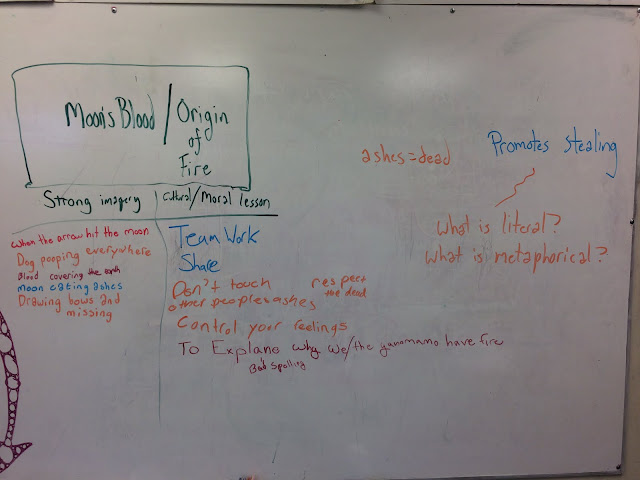 Moon's Blood / Origin
of
Fire
Strong imagery
Cultural/Moral lesson
when the arrow hit the moon
Dog pooping everywhere
Blood covering the earth
moon eating ashes
Drawing bows and
missing
Team Work
Share
Don't touch
other peoples ashes
respect
the dead
Control your feelings
To Explane why we/the yanomamo have fire
Bad Spelling
ashes=dead
Promotes stealing
what is literal?
what is metaphorical?